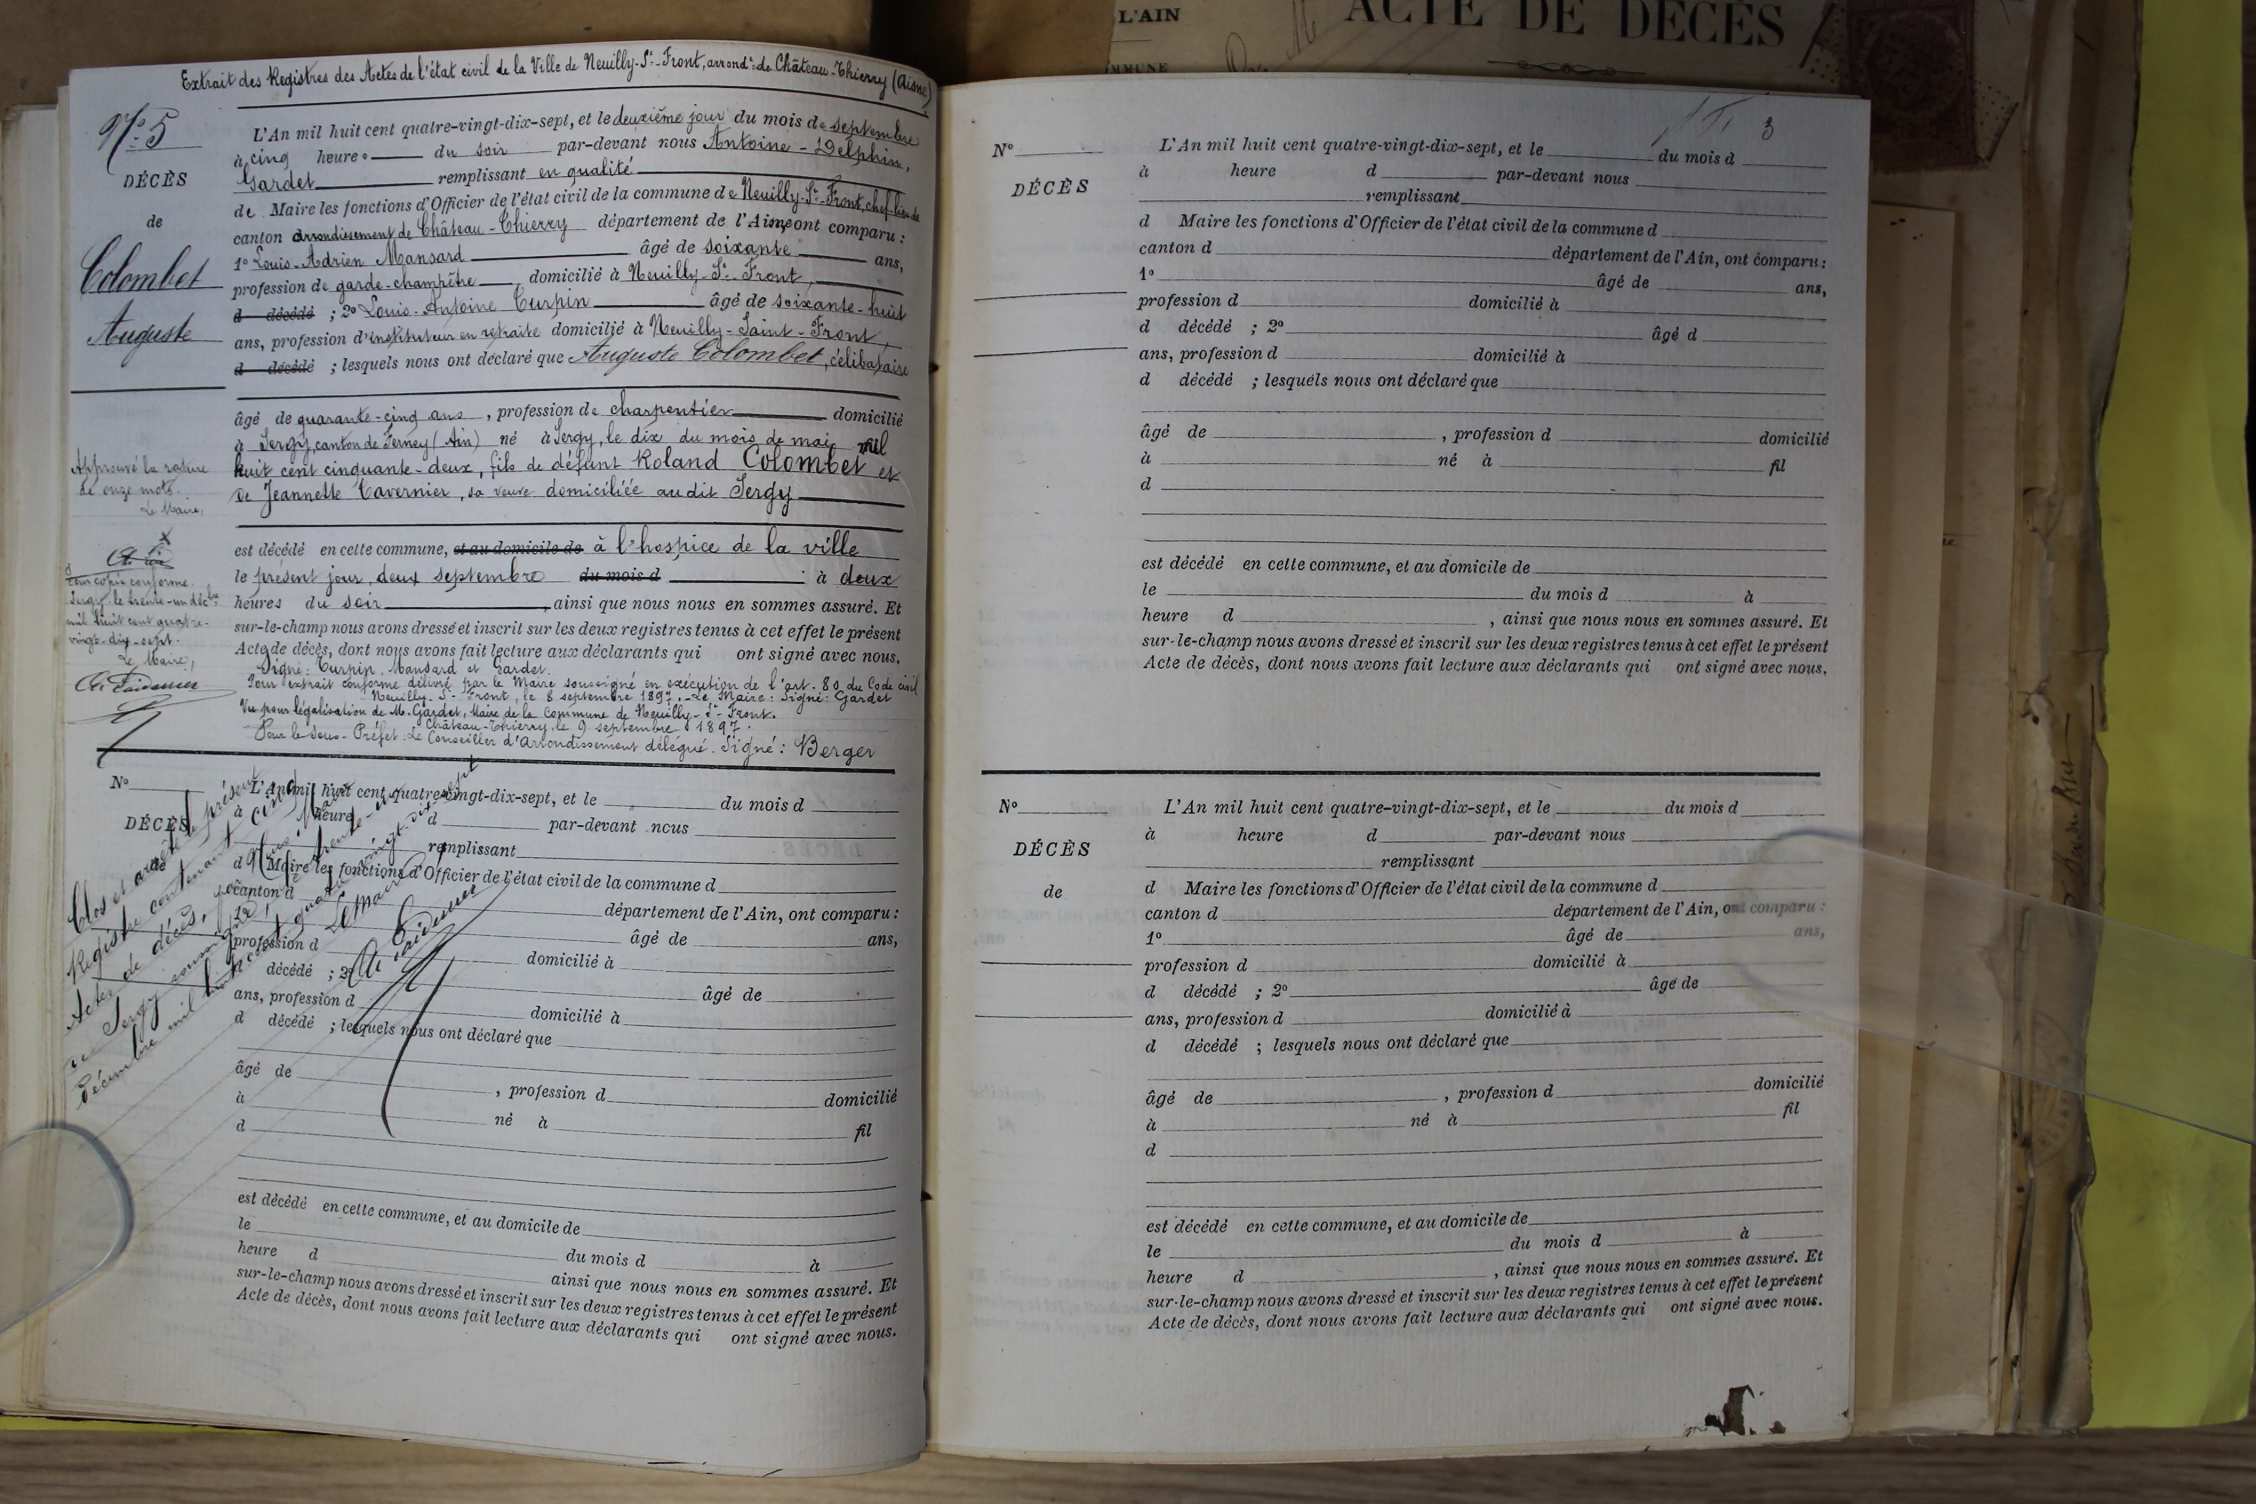 L'AIN
ACTE DE DÉCÈS
Extrait des Registres des Actes de l'état civil de la Ville de Neuilly-St-Front, arrondt de Château-Thierry (Aisne)
N° 5
DÉCÈS
de
Colombet
Auguste
L'An mil huit cent quatre-vingt-dix-sept, et le deuxième jour du mois de septembre
à cinq heures du soir par-devant nous Antoine-Delphin,
Gardet remplissant en qualité
de Maire les fonctions d'Officier de l'état civil de la commune de Neuilly-St-Front, chef-lieu de
canton arrondissement de Château-Thierry département de l'Aisne ont comparu :
1° Louis-Adrien Mansard âgé de soixante ans,
profession de garde-champêtre, domicilié à Neuilly-St-Front,
d décédé ; 2° Louis-Antoine Turpin âgé de soixante-huit
ans, profession d'instituteur en retraite domicilié à Neuilly-Saint-Front,
d décédé ; lesquels nous ont déclaré que Auguste Colombet, célibataire
âgé de quarante-cinq ans, profession de charpentier domicilié
à Sergy, canton de Ferney (Ain) né à Sergy, le dix du mois de mai mil
huit cent cinquante-deux, fils de défunt Roland Colombet et
de Jeannette Tavernier, sa veuve domiciliée audit Sergy
Approuvé la rature
de onze mots.
Le Maire,
est décédé en cette commune, et au domicile de à l'hospice de la ville
le présent jour, deux septembre du mois d à deux
heures du soir, ainsi que nous nous en sommes assuré. Et
sur-le-champ nous avons dressé et inscrit sur les deux registres tenus à cet effet le présent
Acte de décès, dont nous avons fait lecture aux déclarants qui ont signé avec nous.
Signé : Turpin, Mansard et Gardet.
Pour extrait conforme délivré par le Maire soussigné en exécution de l'art. 80 du Code civil
Neuilly-St-Front, le 8 septembre 1897. Le Maire : Signé : Gardet
Vu pour légalisation de M. Gardet, Maire de la Commune de Neuilly-St-Front.
Château-Thierry, le 9 septembre 1897.
Pour le Sous-Préfet : Le Conseiller d'Arrondissement délégué. Signé : Berger
Pour copie conforme.
Sergy le trente-un décbre
mil huit cent quatre-
vingt-dix-sept.
Le Maire,
N°
DÉCÈS
de
L'An mil huit cent quatre-vingt-dix-sept, et le du mois d
à heure d par-devant nous
remplissant
d Maire les fonctions d'Officier de l'état civil de la commune d
canton d département de l'Ain, ont comparu :
1° âgé de ans,
profession d domicilié à
d décédé ; 2° âgé de
ans, profession d domicilié à
d décédé ; lesquels nous ont déclaré que
âgé de , profession d domicilié
à né à fil
d
est décédé en cette commune, et au domicile de
le du mois d à
heure d ainsi que nous nous en sommes assuré. Et
sur-le-champ nous avons dressé et inscrit sur les deux registres tenus à cet effet le présent
Acte de décès, dont nous avons fait lecture aux déclarants qui ont signé avec nous.
Clos et arrêté le présent
Registre contenant cinq
Actes de décès, par nous Maire
de Sergy soussigné, le trente-un
décembre mil huit cent quatre-vingt-dix-sept
Le Maire
3
N°
DÉCÈS
L'An mil huit cent quatre-vingt-dix-sept, et le du mois d
à heure d par-devant nous
remplissant
d Maire les fonctions d'Officier de l'état civil de la commune d
canton d département de l'Ain, ont comparu :
1° âgé de ans,
profession d domicilié à
d décédé ; 2° âgé d
ans, profession d domicilié à
d décédé ; lesquels nous ont déclaré que
âgé de , profession d domicilié
à né à fil
d
est décédé en cette commune, et au domicile de
le du mois d à
heure d , ainsi que nous nous en sommes assuré. Et
sur-le-champ nous avons dressé et inscrit sur les deux registres tenus à cet effet le présent
Acte de décès, dont nous avons fait lecture aux déclarants qui ont signé avec nous.
N°
DÉCÈS
de
L'An mil huit cent quatre-vingt-dix-sept, et le du mois d
à heure d par-devant nous
remplissant
d Maire les fonctions d'Officier de l'état civil de la commune d
canton d département de l'Ain, ont comparu :
1° âgé de ans,
profession d domicilié à
d décédé ; 2° âgé de
ans, profession d domicilié à
d décédé ; lesquels nous ont déclaré que
âgé de , profession d domicilié
à né à fil
d
est décédé en cette commune, et au domicile de
le du mois d à
heure d , ainsi que nous nous en sommes assuré. Et
sur-le-champ nous avons dressé et inscrit sur les deux registres tenus à cet effet le présent
Acte de décès, dont nous avons fait lecture aux déclarants qui ont signé avec nous.